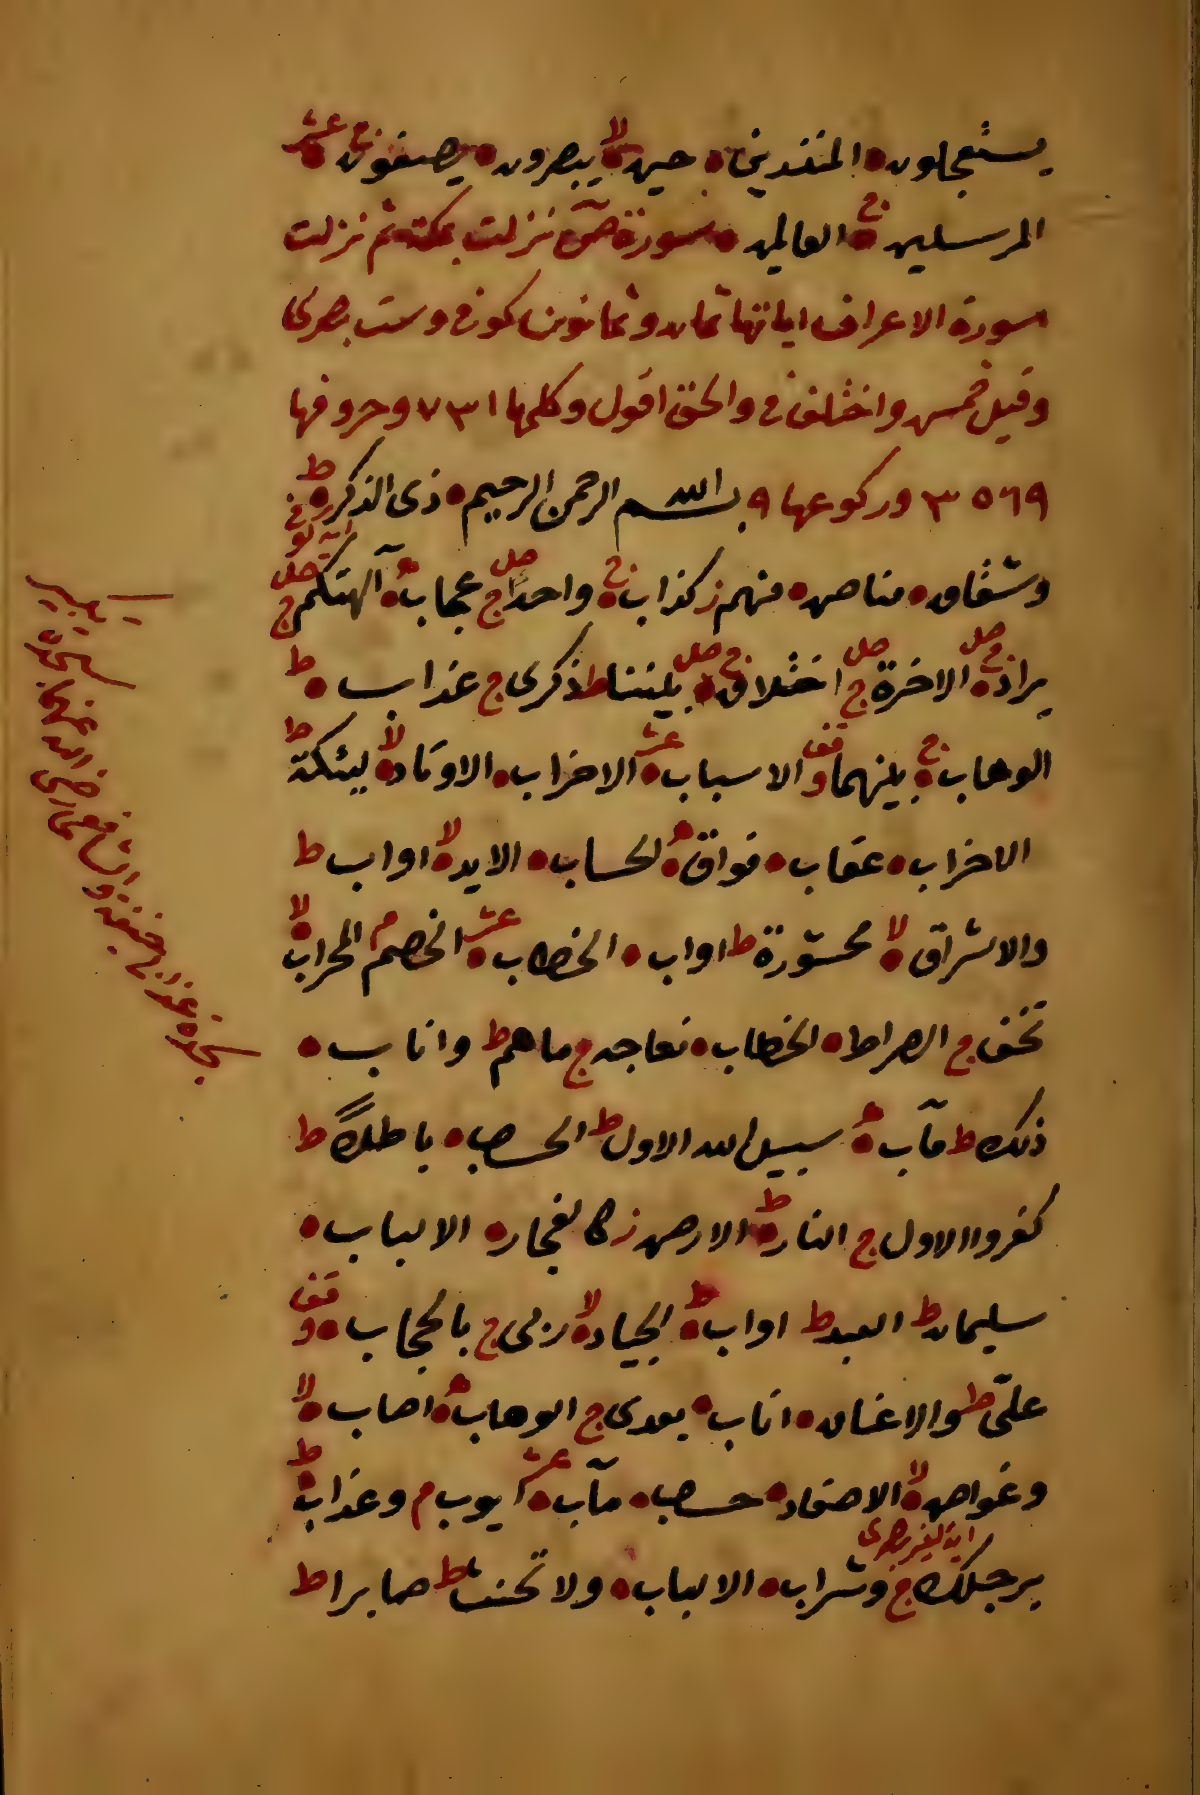 يستعجلون المنذرين حين لا يبصرون يصفون ج عشر
المرسلين ج العالمين سورة ص نزلت بمكة ثم نزلت
سورة الاعراف اياتها ثمان وثمانون كوفى وست بصرى
وقيل خمس واختلف فى والحق اقول وكلمها ٧٣١ وحروفها
٣٥٦٩ وركوعها ٩ بسم الله الرحمن الرحيم ذى الذكر ط
وشقاق مناص منهم ز كذاب ج واحدا صلى ج عجاب آلهتكم صلى ج
يراد ج صلى الاخرة صلى ج اختلاق ج صلى بيننا ط ذكرى ج عذاب ط
الوهاب ج بينهما قف الاسباب عشر الاحزاب الاوتاد لا ليئكة ط
الاحزاب عقاب فواق الحساب الايد لا اواب ط
والاشراق لا محشورة ط اواب الخطاب عشر الخصم م المحراب لا
تخف ج الصراط الخطاب نعاجه ج ما هم ط واناب
ذلك ط مآب سبيل الله الاول ط الحساب باطلا ط
كفروا الاول ج النار ط الارض ز كالفجار الالباب
سليمان ط العبد ط اواب ط الجياد لا ربى ج بالحجاب قف
على ط والاعناق اناب بعدى ج الوهاب اصاب لا
وغواص لا الاصفاد حساب مآب عشر ايوب م وعذاب ط
اية لغير بصرى
برجلك ج وشراب الالباب ولا تحنث ط صابرا ط